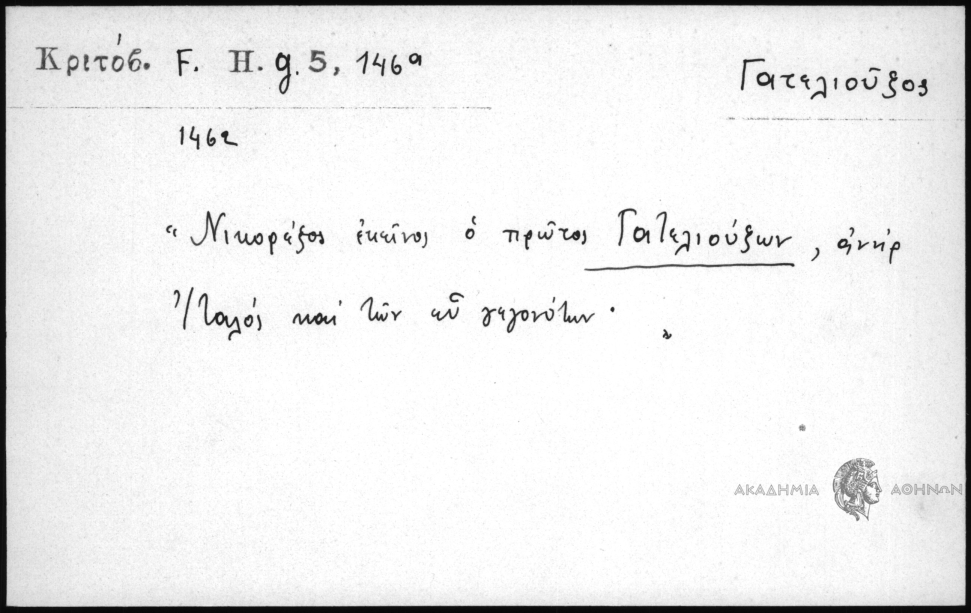 Κριτόβ. F. H. g. 5, 146ᵃ
Γατελιοῦξος
1462
"Νικορέξος ἐκεῖνος ὁ πρῶτος Γατελιούξων, ἀνὴρ
Ἰταλός καὶ τῶν εὖ γεγονότων· "
ΑΚΑΔΗΜΙΑ ΑΘΗΝΩΝ